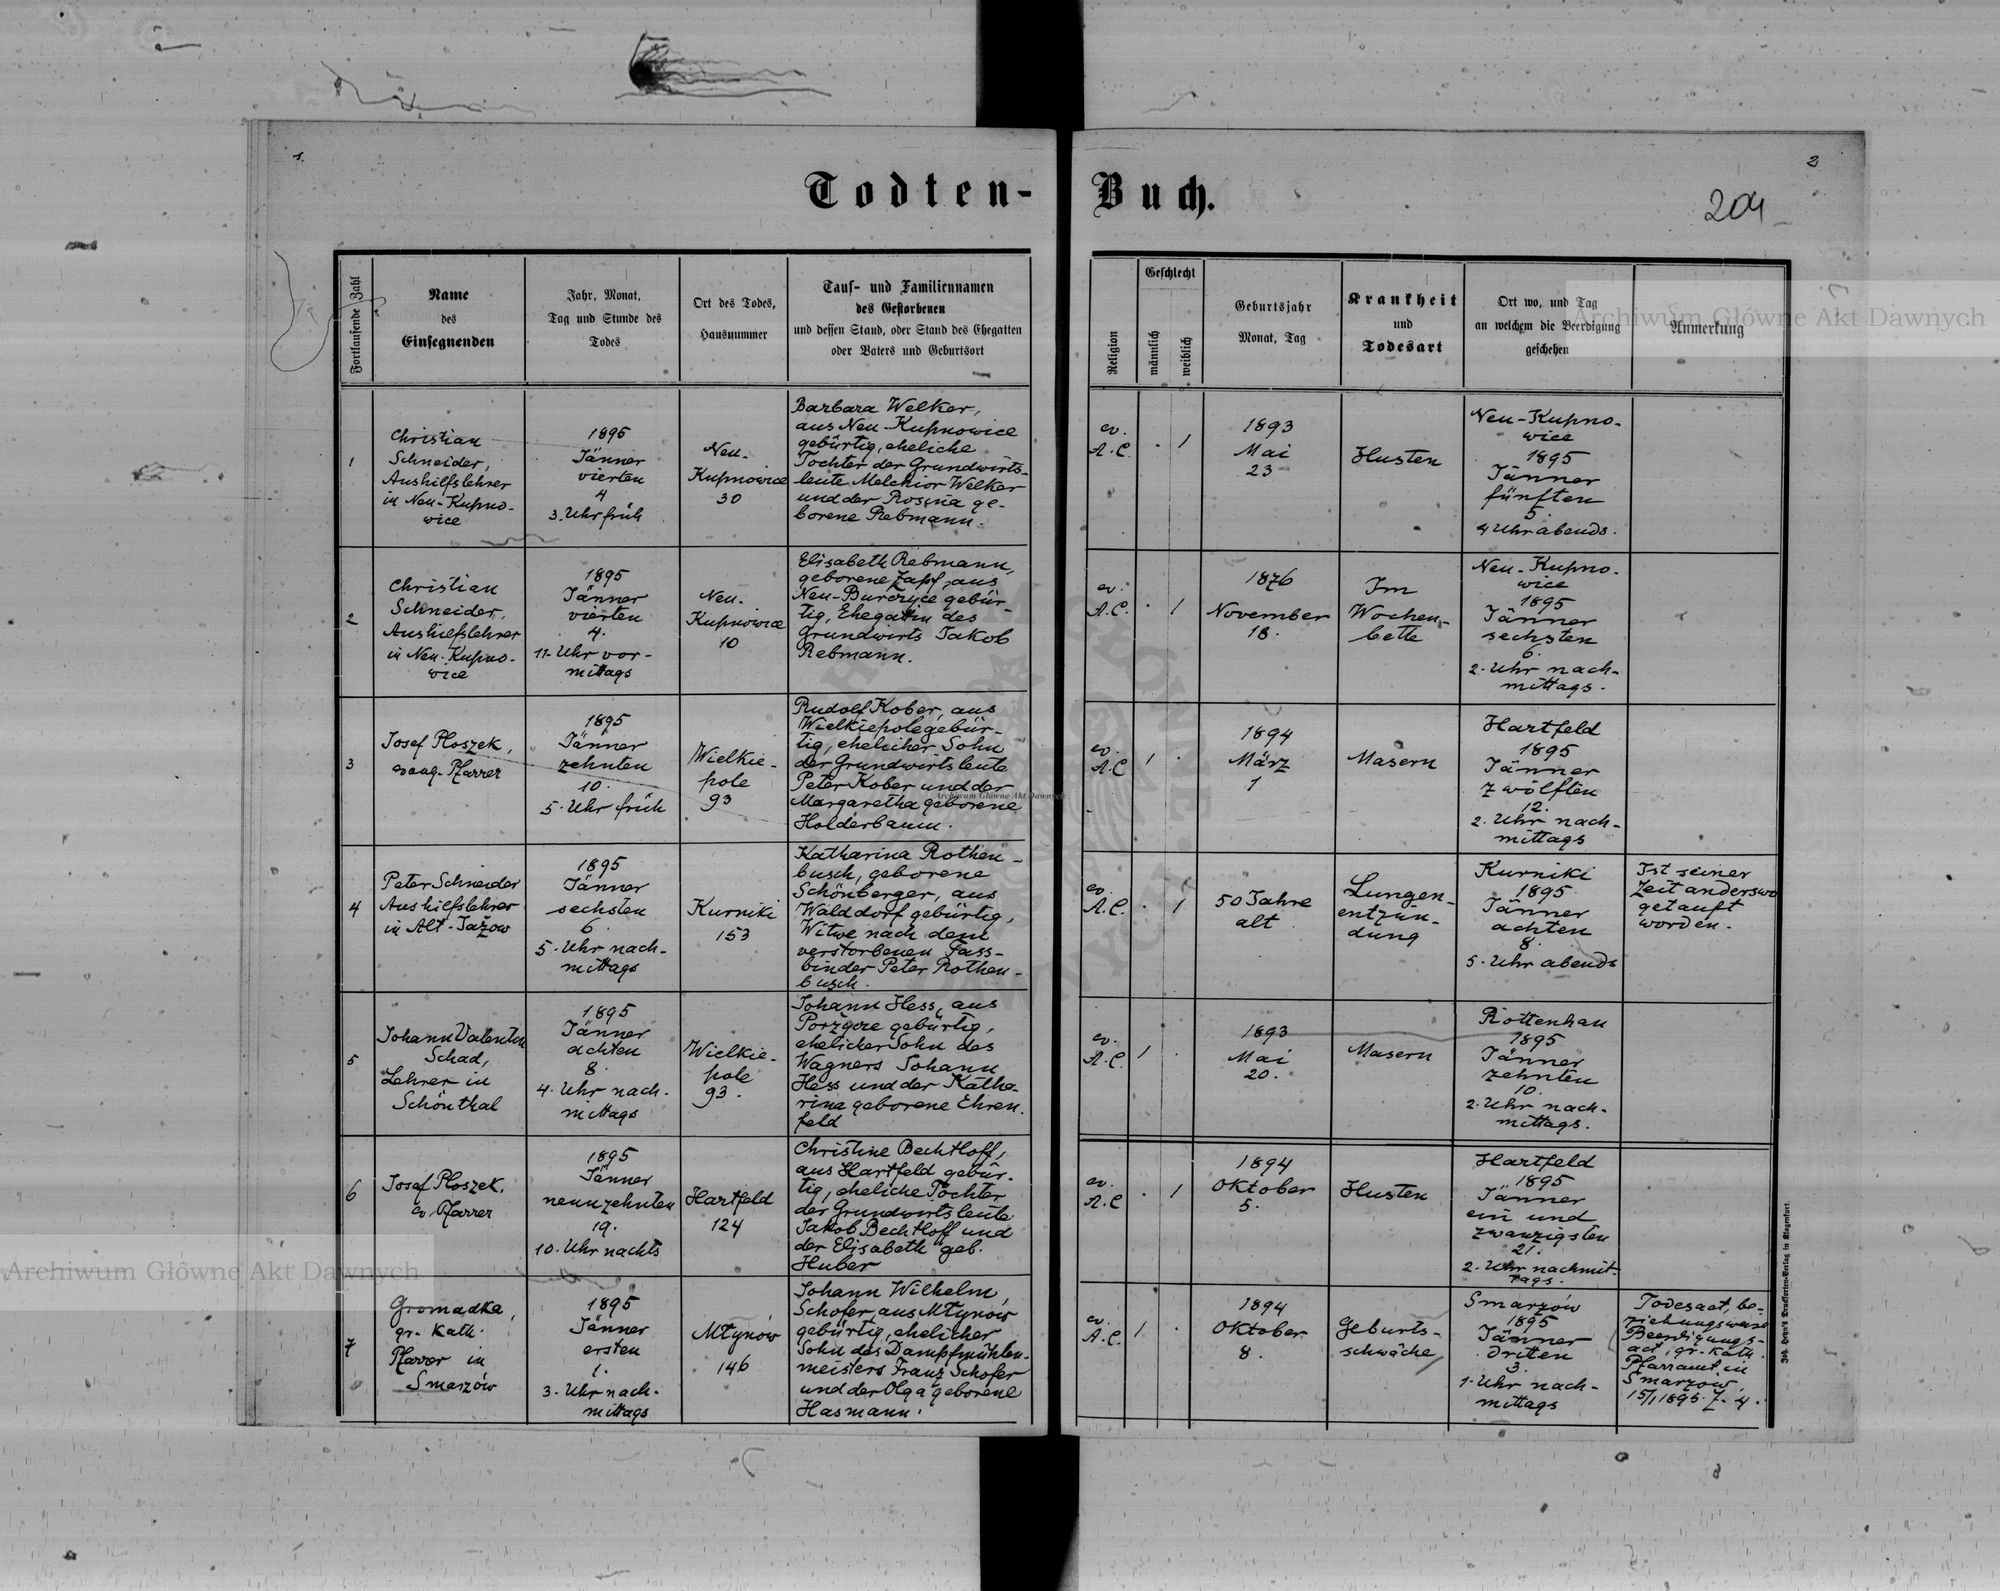 1.
2
Todten-Buch.
204
Fortlaufende Zahl
Name
des
Einsegnenden
Jahr, Monat,
Tag und Stunde des
Todes
Ort des Todes,
Hausnummer
Tauf- und Familiennamen
des Gestorbenen
und dessen Stand, oder Stand des Ehegatten
oder Vaters und Geburtsort
Religion
Geschlecht
männlich
weiblich
Geburtsjahr
Monat, Tag
Krankheit
und
Todesart
Ort wo, und Tag
an welchem die Beerdigung
geschehen
Anmerkung
Archiwum Główne Akt Dawnych
1
Christian
Schneider,
Aushilfslehrer
in Neu-Kupno-
wice
1895
Jänner
vierten
4
3. Uhr früh
Neu-
Kupnowice
30
Barbara Welker,
aus Neu-Kupnowice
gebürtig, eheliche
Tochter der Grundwirts-
leute Melchior Welker
und der Rosina ge-
borene Rebmann.
ev.
A.C.
. 1
1893
Mai
23
Husten
Neu-Kupno-
wice
1895
Jänner
fünften
5.
4 Uhr abends.
2
Christian
Schneider,
Aushilfslehrer
in Neu-Kupno-
wice
1895
Jänner
vierten
4.
11. Uhr vor-
mittags
Neu-
Kupnowice
10
Elisabeth Rebmann,
geborene Zapf, aus
Neu-Burczyce gebür-
tig, Ehegattin des
Grundwirts Jakob
Rebmann.
ev.
A.C.
. 1
1876
November
18.
Im
Wochen-
bette
Neu-Kupno-
wice
1895
Jänner
sechsten
6.
2. Uhr nach-
mittags.
3
Josef Ploszek,
evang. Pfarrer
1895
Jänner
zehnten
10.
5. Uhr früh
Wielkie-
pole
93
Rudolf Kober, aus
Wielkiepole gebür-
tig, ehelicher Sohn
der Grundwirtsleute
Peter Kober und der
Margaretha geborene
Holderbaum.
ev.
A.C
1 .
1894
März
1
Masern
Hartfeld
1895
Jänner
zwölften
12.
2. Uhr nach-
mittags
Archiwum Główne Akt Dawnych
4
Peter Schneider
Aushilfslehrer
in Alt-Jażow
1895
Jänner
sechsten
6.
5. Uhr nach-
mittags
Kurniki
153
Katharina Rothen-
busch, geborene
Schönberger, aus
Walddorf gebürtig,
Witwe nach dem
verstorbenen Fass-
binder Peter Rothen-
busch.
ev.
A.C.
. 1
50 Jahre
alt
Lungen-
entzün-
dung
Kurniki
1895
Jänner
achten
8.
5. Uhr abends
Ist seiner
Zeit anderswo
getauft
worden.
5
Johann Valentin
Schad,
Lehrer in
Schönthal
1895
Jänner
achten
8.
4. Uhr nach-
mittags
Wielkie-
pole
93.
Johann Hess, aus
gebürtig,
ehelicher Sohn des
Wagners Johann
Hess und der Katha-
rina geborene Ehren-
feld
ev.
A.C.
1 .
1893
Mai
20.
Masern
Rottenhan
1895
Jänner
zehnten
10.
2. Uhr nach-
mittags.
6
Josef Ploszek,
ev. Pfarrer
1895
Jänner
neunzehnten
19.
10. Uhr nachts
Hartfeld
124
Christine Bechtloff,
aus Hartfeld gebür-
tig, eheliche Tochter
der Grundwirtsleute
Jakob Bechtloff und
der Elisabeth geb.
Huber
ev.
A.C
. 1
1894
Oktober
5.
Husten
Hartfeld
1895
Jänner
ein und
zwanzigsten
21.
2. Uhr nachmit-
tags.
7
Gromadka,
gr. kath.
Pfarrer in
Smarzów
1895
Jänner
ersten
1.
3. Uhr nach-
mittags
Młynów
146
Johann Wilhelm
Schofer, aus Młynów
gebürtig, ehelicher
Sohn des Dampfmühlen-
meisters Franz Schofer
und der Olga geborene
Hasmann.
ev.
A.C.
1 .
1894
Oktober
8.
Geburts-
schwäche
Smarzów
1895
Jänner
dritten
3.
1. Uhr nach-
mittags
Todesact, be-
ziehungsweise
Beerdigungs-
act, gr. kath.
Pfarramt in
Smarzów,
15/1 1895. Z. 4.
Archiwum Główne Akt Dawnych
Joh. Heyn's Drucksorten-Verlag in Klagenfurt.